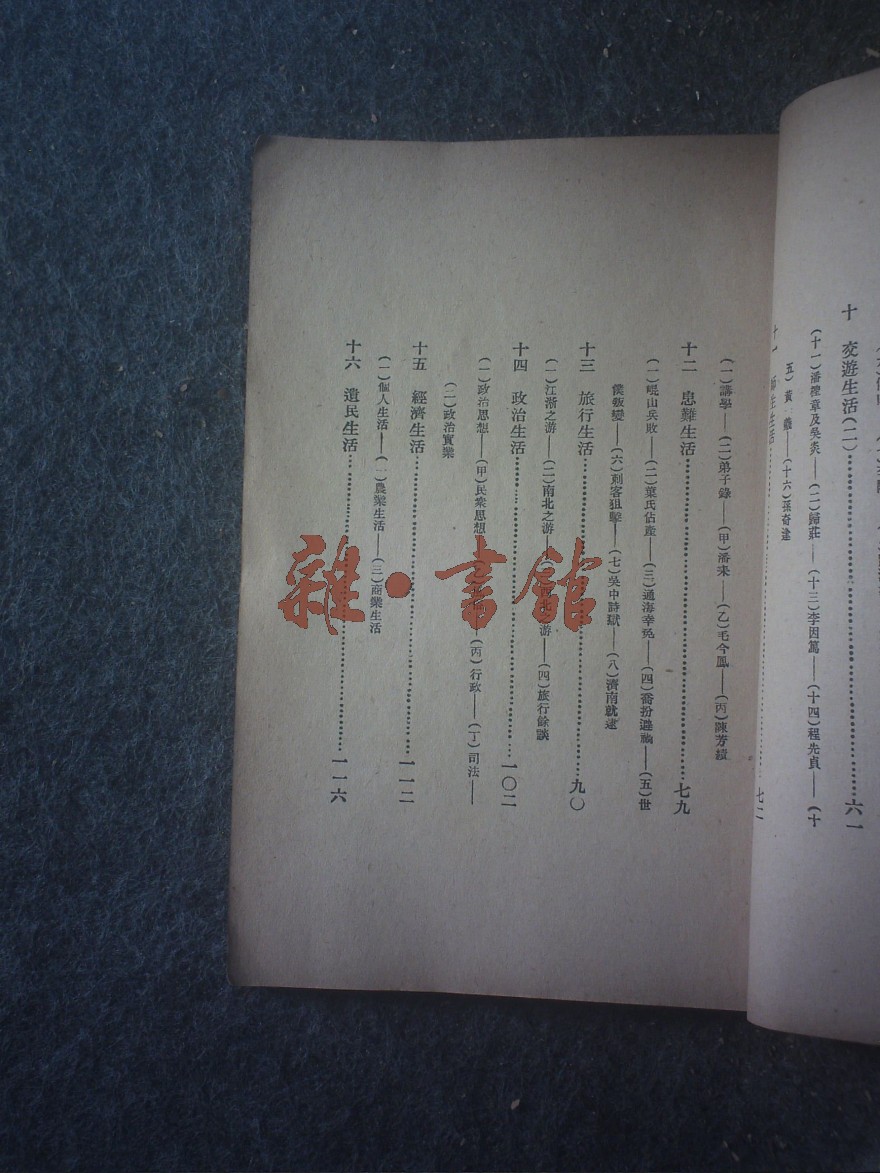 十　交遊生活(二)……六一
(十一)潘檉章及吳炎——(十二)歸莊——(十三)李因篤——(十四)程先貞——(十
五)黃——(十六)孫奇逢
十一　生生活……七二
(一)講學——(二)弟子錄——(甲)潘耒——(乙)毛今鳳——(丙)陳芳績
十二　患難生活……七九
(一)崐山兵敗——(二)葉氏佔產——(三)通海幸免——(四)喬扮避禍——(五)世
僕叛變——(六)刺客狙擊——(七)吳中詩獄——(八)濟南就逮
十三　旅行生活……九〇
(一)江浙之游——(二)南北之游——北游——(四)旅行餘談
十四　政治生活……一〇二
(一)政治思想——(甲)民衆思想——(丙)行政——(丁)司法——
(二)政治實業
十五　經濟生活……一一二
(一)個人生活——(二)農業生活——(三)商業生活
十六　遺民生活……一一六
雜·書館